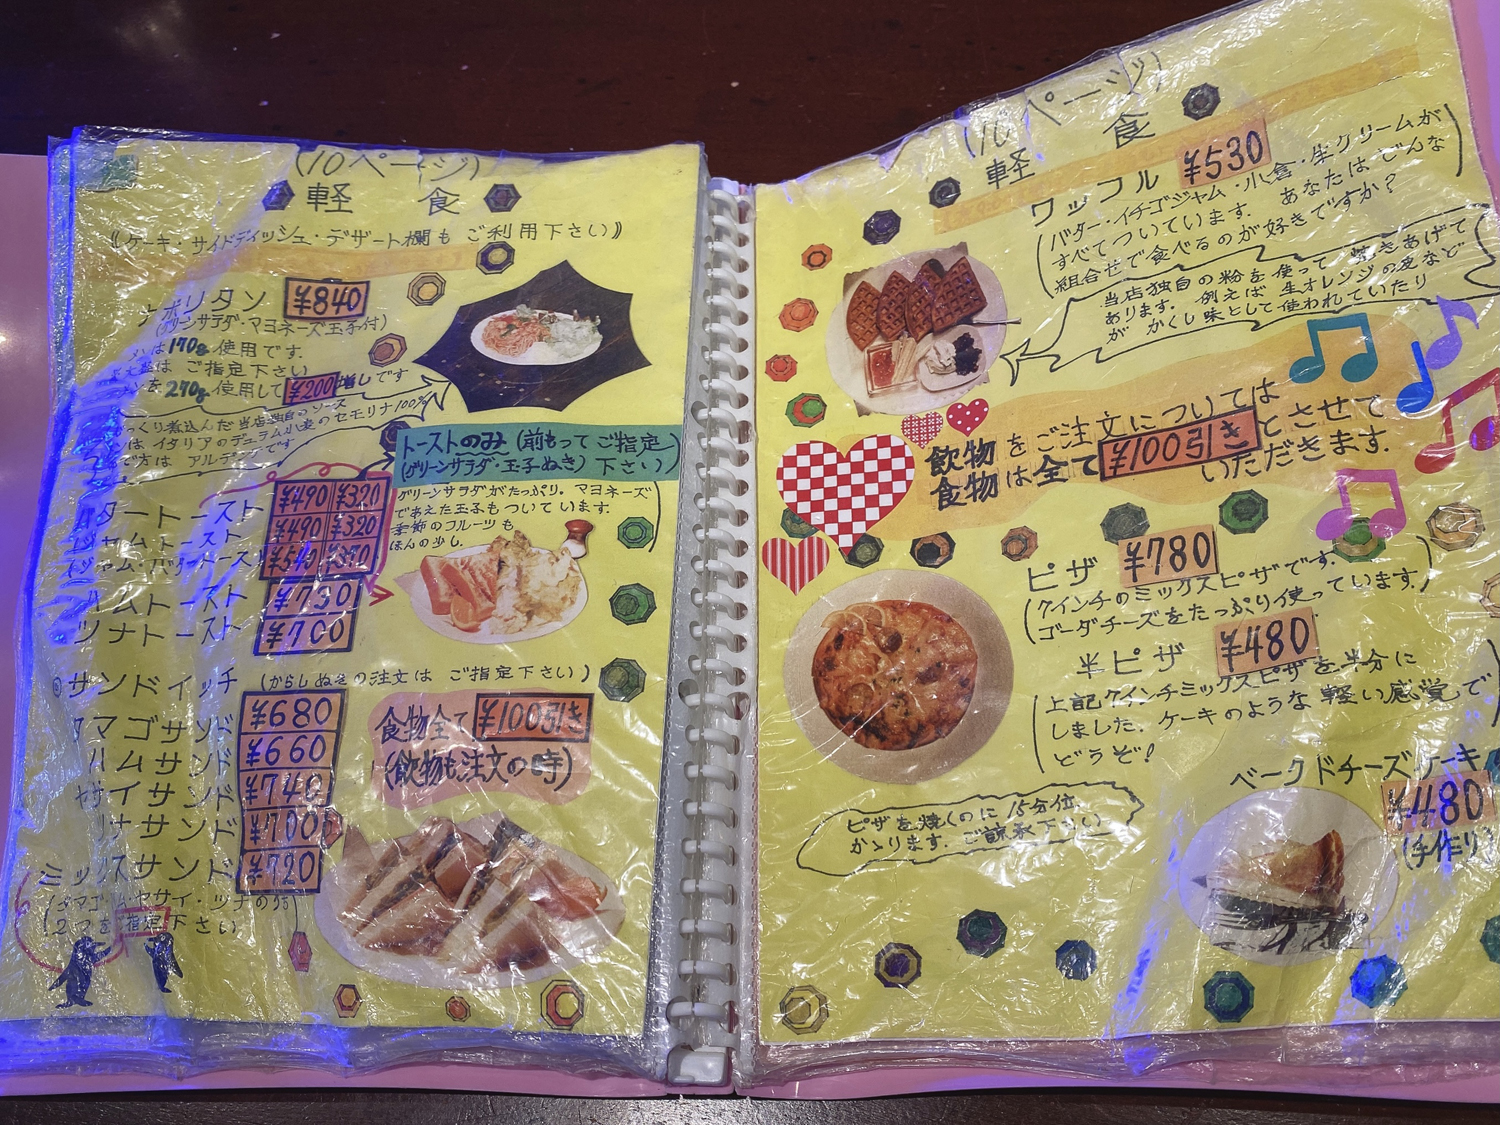 (10ページ)
軽 食
《ケーキ・サイドディッシュ・デザート欄も ご利用下さい》
ナポリタン ¥840
(グリーンサラダ・マヨネーズ玉子付)
は170g使用です.
は ご指定下さい
を240g使用して¥200増しです
っくり煮込んだ当店独自のソース
は イタリアのデュラム小麦のセモリナ100%
で方は アルデンテです
トーストのみ (前もって ご指定
(グリーンサラダ・玉子ぬき) 下さい)
バタートースト ¥490 ¥320
ジャムトースト ¥490 ¥320
ジャム・バタートースト ¥540 ¥370
ハムトースト ¥750
ツナトースト ¥700
グリーンサラダがたっぷり。マヨネーズ
であえた玉子もついています.
季節のフルーツも
ほんの少し.
サンドイッチ (からしぬきの注文は ご指定下さい)
タマゴサンド ¥680
ハムサンド ¥660
ヤサイサンド ¥740
ツナサンド ¥700
ミックスサンド ¥720
(タマゴ・ハム・ヤサイ・ツナのうち
2つを指定下さい
食物全て ¥100引き
(飲物も注文の時)
(10ページ)
軽 食
ワッフル ¥530
(バター・イチゴジャム・小倉・生クリームが
すべてついています. あなたは どんな
組合せで食べるのが好きですか?
当店独自の粉を使って 焼きあげて
あります. 例えば 生オレンジの皮など
が かくし味として使われていたり
飲物をご注文については
食物は全て¥100引きとさせて
いただきます.
ピザ ¥780
(7インチのミックスピザです.
ゴーダチーズをたっぷり使っています.)
半ピザ ¥480
上記7インチミックスピザを半分に
しました. ケーキのような 軽い感覚で
どうぞ!
ピザを焼くのに15分位
かゝります. ご諒承下さい
ベークドチーズケーキ
¥480
(手作り)